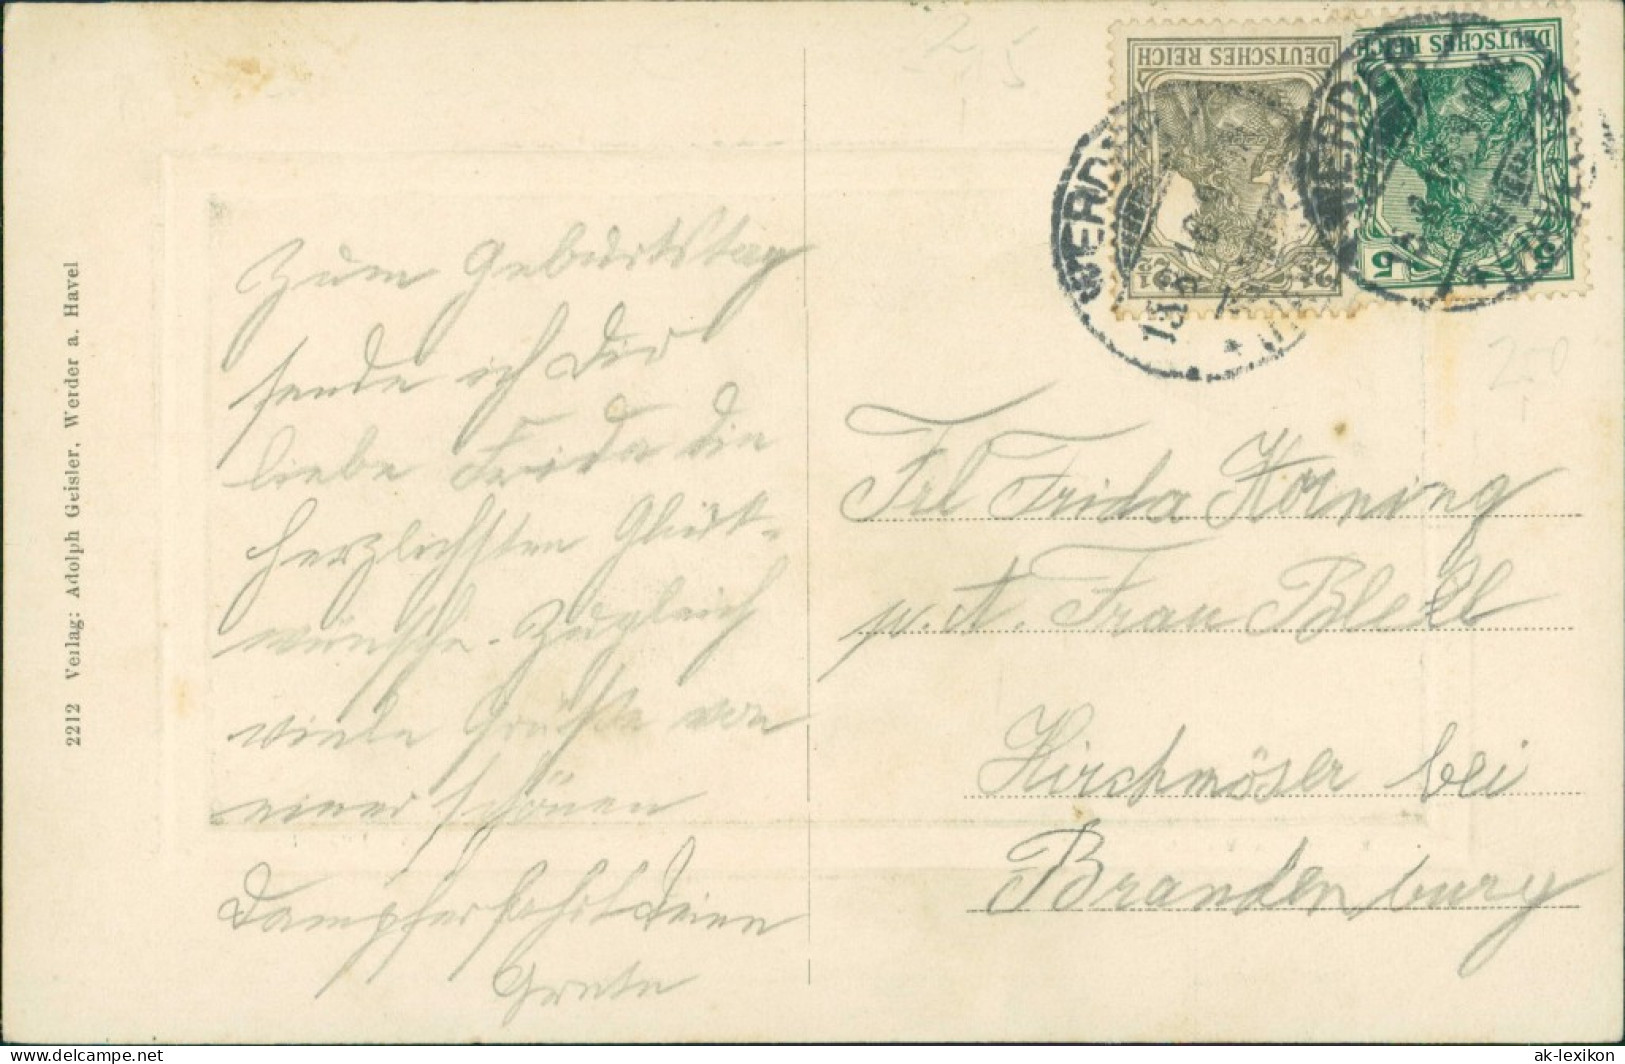 2212 Verlag: Adolph Geisler, Werder a. Havel
Zum Geburtstag
sende ich Dir
liebe Frida die
herzlichsten Glück-
wünsche. Zugleich
viele Grüße von
einer schönen
Dampferfahrt Deine
Grete
DEUTSCHES REICH
DEUTSCHES REICH
2½
5
WERDER
WERDER
Frl Frida Horning
p. A. Frau Blell
Kirchmöser bei
Brandenburg
www.delcampe.net
ak-lexikon